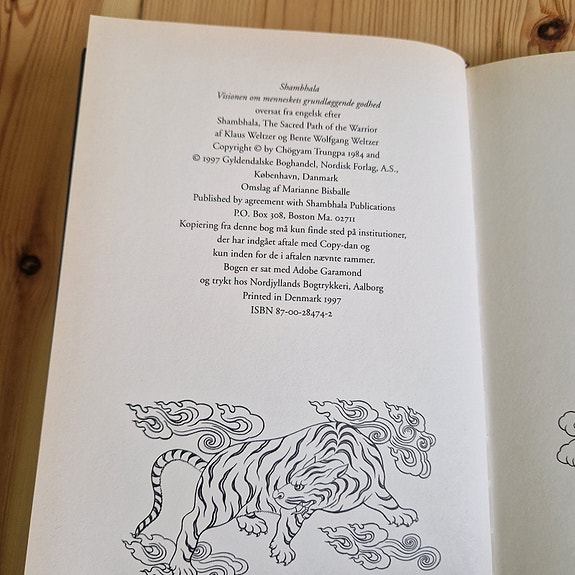 Shambhala
Visionen om menneskets grundlæggende godhed
oversat fra engelsk efter
Shambhala, The Sacred Path of the Warrior
af Klaus Weltzer og Bente Wolfgang Weltzer
Copyright © by Chögyam Trungpa 1984 and
© 1997 Gyldendalske Boghandel, Nordisk Forlag, A.S.,
København, Danmark
Omslag af Marianne Bisballe
Published by agreement with Shambhala Publications
P.O. Box 308, Boston Ma. 02711
Kopiering fra denne bog må kun finde sted på institutioner,
der har indgået aftale med Copy-dan og
kun inden for de i aftalen nævnte rammer.
Bogen er sat med Adobe Garamond
og trykt hos Nordjyllands Bogtrykkeri, Aalborg
Printed in Denmark 1997
ISBN 87-00-28474-2